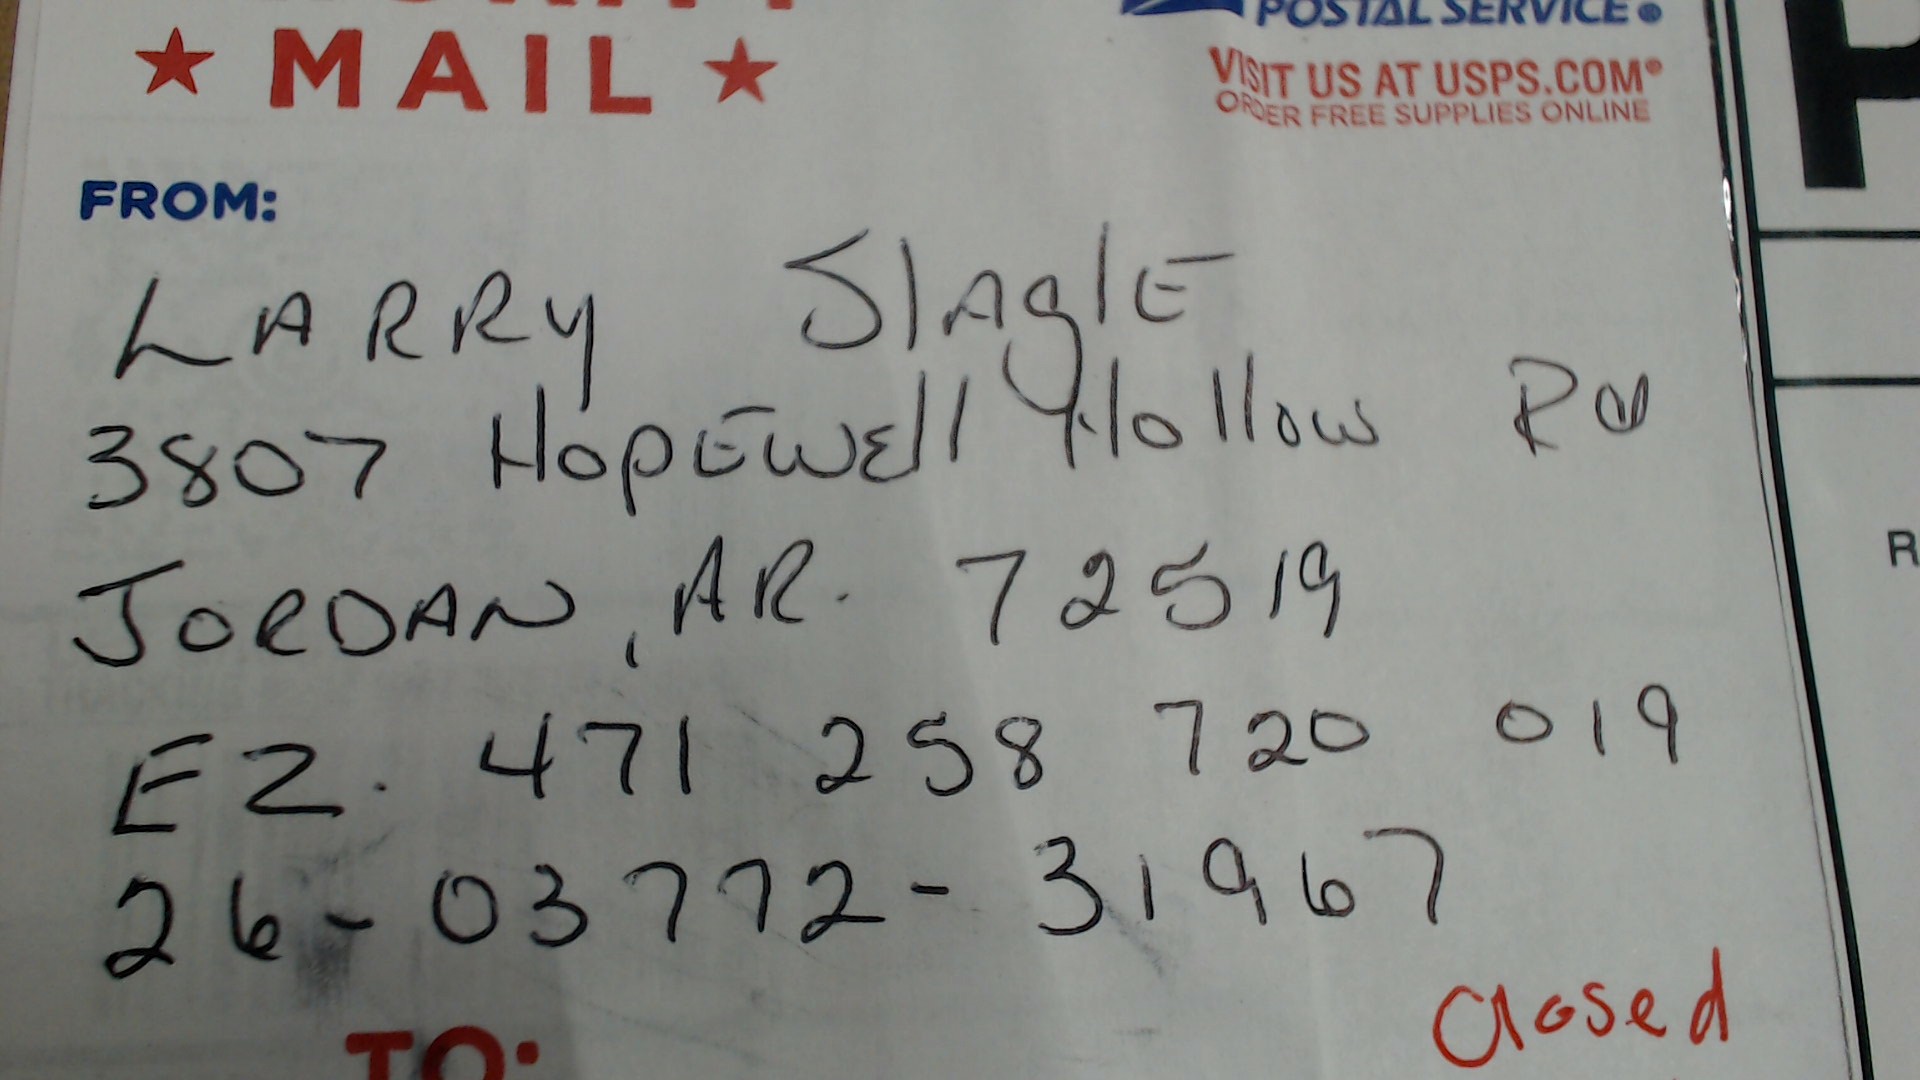 MAIL
POSTAL SERVICE
VISIT US AT USPS.COM®
ORDER FREE SUPPLIES ONLINE
FROM:
LARRY SlaglE
3807 HopEwEll Hollow RD
JORDAN, AR. 72519
EZ. 471 258 720 019
26-03772-31967
Closed
TO:
R